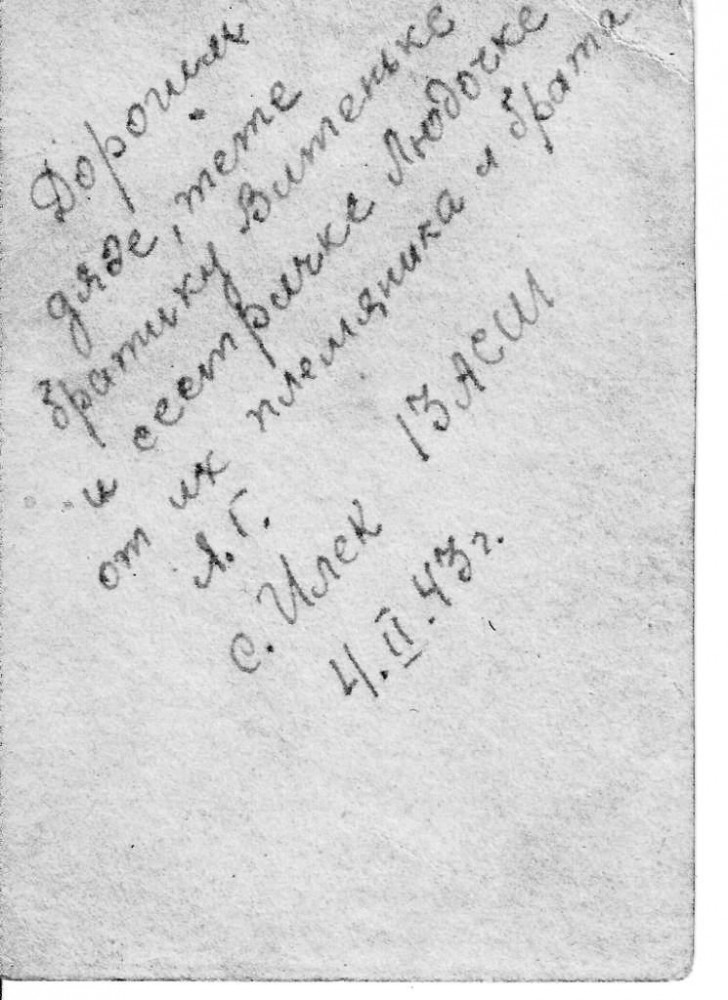 Дорогим
дяде, тете
братику Витеньке
и сестричке Людочке
от их племянника и брата
А.Г.
с. Илек 13 АСШ
4.II.43г.